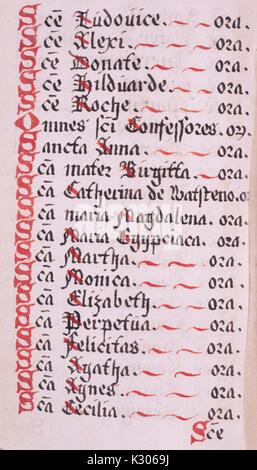 Sce Ludovice. ora.
Sce Alexi. ora.
Sce Donate. ora.
Sce Hilduarde. ora.
Sce Roche. ora.
Omnes sci Confessores. or.
Sancta Anna. ora.
Sca mater Birgitta. ora.
Sca Catherina de Watsteno. or
Sca maria Magdalena. ora.
Sca Maria Egypciaca. ora.
Sca Martha. ora.
Sca Monica. ora.
Sca Elizabeth. ora.
Sca Perpetua. ora.
Sca Felicitas. ora.
Sca Agatha. ora.
Sca Agnes. ora.
Sca Cecilia. ora.
Sce
alamy
Image ID: K3069J
www.alamy.com